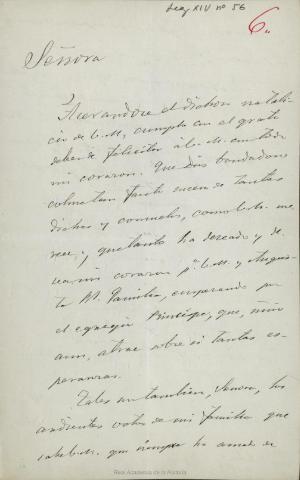 Leg XIV nº 56
6.
Señora
Acercandose el dichoso natali-
cio de V. M., cumplo con el grato
deber de felicitar á V. M. con todo
mi corazon. Que Dios bondadoso
colme tan fausto suceso de tantas
dichas y consuelos, como V. M. me-
rece, y que tanto ha deseado y de-
sea mi corazon pª V. M. y Augus-
ta R. Familia, empezando por
el egregio Principe, que, niño
aun, atrae sobre si tantas es-
peranzas.
Tales son tambien, Señora, los
ardientes votos de mi familia que
sabe V. M. que siempre ha amado
Real Academia de la Historia